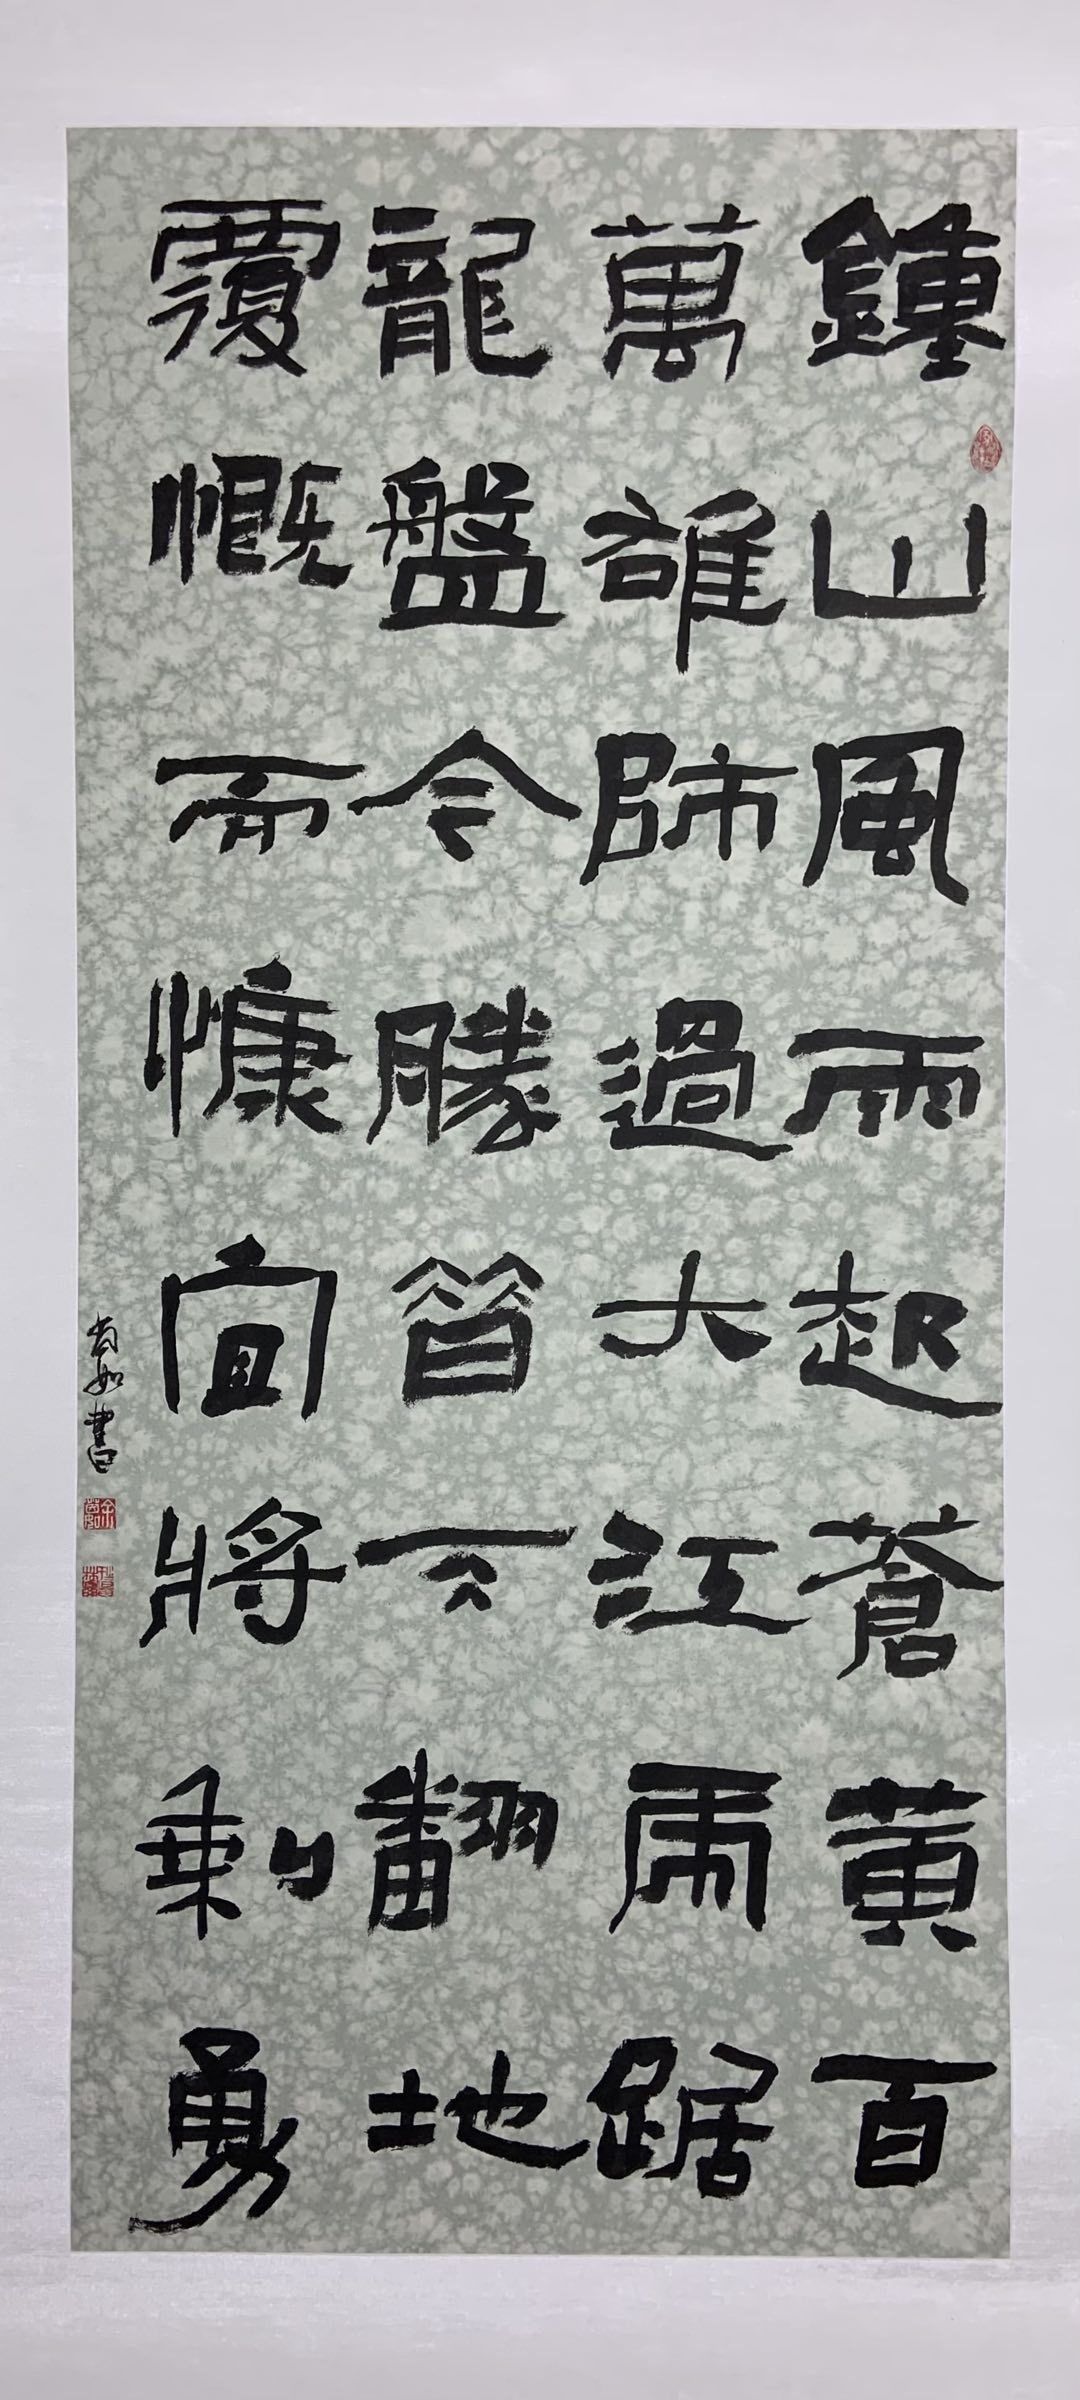 鍾山風雨起蒼黃百
萬雄師過大江虎踞
龍盤今勝昔天翻地
覆慨而慷宜將剩勇
茵如書